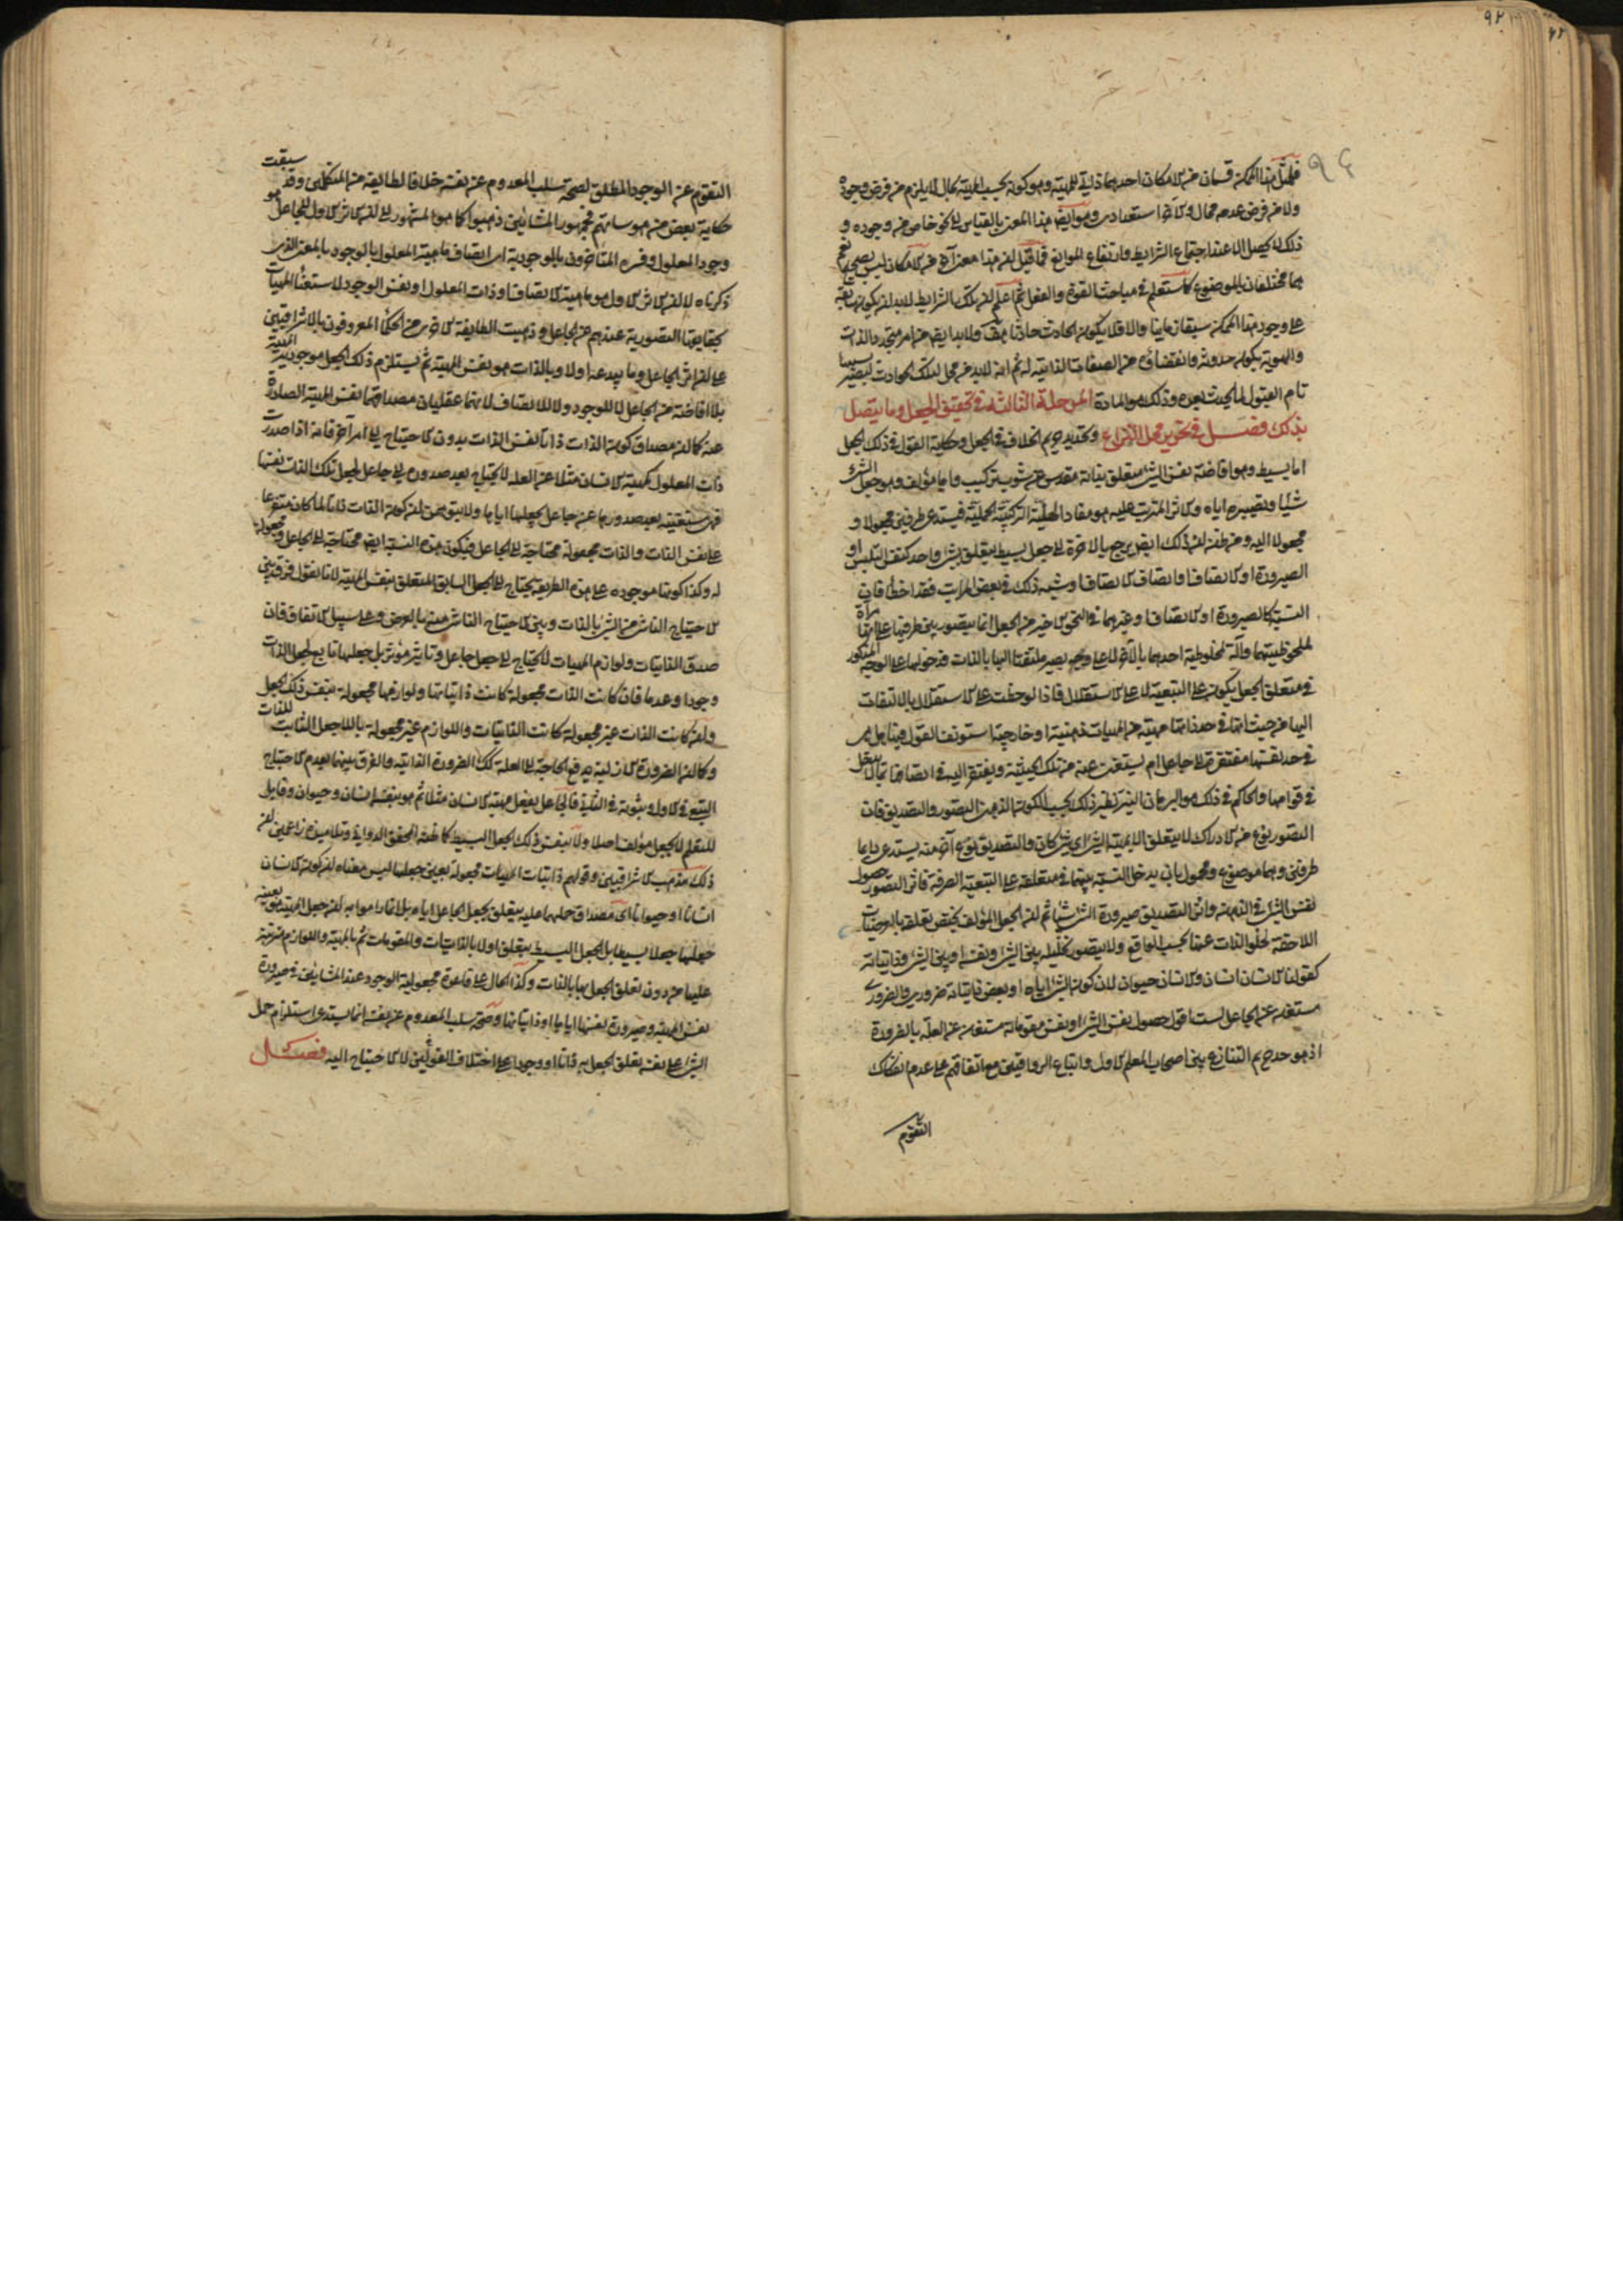 فلمثل هذا الممكن قسمان من الامكان احدهما ذاتى للمهية وهو كونه بحسب المهية بحال لا يلزم من فرض وجوده
ولا من فرض عدمه محال والآخر استعدادى وهو ايض هذا المعنى بالقياس الى نحو خاص من وجوده و
ذلك لا يحصل الا عند اجتماع الشرايط وارتفاع الموانع فما قيل ان هذا معنى آخر من الامكان ليس بصحيح نعم
هما مختلفان بالموضوع كما ستعلم فى مباحث القوة والفعل ثم اعلم ان تلك الشرايط لا بد ان يكون سابقة
على وجود هذا الممكن سبقا زمانيا والا فلا يكون الحادث حادثا هف ولا بد ايض من امر متجدد الذات
والهوية يكون حدوثه وانقضاؤه من الصفات الذاتية له ثم انه لا بد من محل لتلك الحوادث ليصير بسببها
تام القبول لما يحدث بعده وذلك هو المادة المرحلة الثالثة فى تحقيق الجعل وما يتصل
بذلك فصل فى تحرير محل النزاع وتحديد حريم الخلاف فى الجعل وحكاية القول فى ذلك الجعل
اما بسيط وهو افاضة نفس الشئ متعلق بذاته مقدس عن شوب تركيب واما مؤلف وهو جعل الشئ
شيئا وتصييره اياه والاثر المترتب عليه هو مفاد الهلية التركيبية الحملية فيستدعى طرفين مجعولا و
مجعولا اليه ومن ظن ان ذلك ايض يرجع بالاخرة الى جعل بسيط يتعلق بشئ واحد كنفس التلبس او
الصيرورة او الاتصاف او اتصاف الاتصاف او شبه ذلك فى بعض المراتب فقد اخطأ فان
النسبة كالصيرورة او الاتصاف او غيرهما فى النحو الاخير من الجعل انما يتصور بين طرفيها على انها مرآة
لملحوظيتهما وآلة لمخلوطية احدهما بالآخر لا على وجه يصير ملتفتا اليها بالذات فدخولها على الوجه المذكور
فى متعلق الجعل يكون على التبعية لا على الاستقلال فاذا لوحظت على الاستقلال بالالتفات
اليها من حيث انها فى حد ذاتها مهية من المهيات ذهنية او خارجية استونف القول فيها هل هى
فى حد نفسها مفتقرة الى جاعل ام يستغنى عنه من تلك الحيثية ويفتقر اليه فى اتصافها بما لا يدخل
فى قوامها والحاكم فى ذلك هو البرهان النير نظير ذلك بحسب الكون الذهنى التصور والتصديق فان
التصور نوع من الادراك لا يتعلق الا بمهية الشئ اى شئ كان والتصديق نوع آخر منه يستدعى دايما
طرفين وهما موضوع ومحمول بان يدخل النسبة بينهما فى متعلقه على التبعية الصرفة فاثر التصور حصول
نفس الشئ فى الذهن واثر التصديق صيرورة الشئ شيئا ثم ان الجعل المؤلف يختص تعلقه بالعرضيات
اللاحقة لخلو الذات عنها بحسب الواقع ولا يتصور تخلله بين الشئ ونفسه او بين الشئ وذاتياته
كقولنا الانسان انسان والانسان حيوان لان كون الشئ اياه او بعض ذاتياته ضرورى والضرورى
مستغن عن الجاعل لست اقول حصول نفس الشئ او نفس مقوماته مستغن عن العلة بالضرورة
اذ هو حد حريم التنازع بين اصحاب المعلم الاول واتباع الرواقيين مع اتفاقهم على عدم انفكاك
التقوم
التقوم عن الوجود المطلق لصحة سلب المعدوم عن نفسه خلافا لطايفة من المتكلمين وقد سبقت
حكاية بعض من هوساتهم فجمهور المشائين ذهبوا كما هو المشهور الى ان الاثر الاول للجاعل هو
وجود المعلول وفسره المتاخرون بالموجودية اى اتصاف ماهية المعلول بالوجود بالمعنى الذى
ذكرناه لا ان الاثر الاول هو ماهية الاتصاف او ذات المعلول او نفس الوجود لاستغناء المهيات
بحقايقها التصورية عندهم عن الجاعل وذهبت الطايفة الاخرى من الحكما المعروفون بالاشراقيين
على ان اثر الجاعل وما يبدعه اولا وبالذات هو نفس المهية ثم يستلزم ذلك الجعل موجودية المهية
بلا افاضة من الجاعل لا للوجود ولا للاتصاف لانهما عقليان مصداقهما نفس المهية الصادرة
عنه كما ان مصداق كون الذات ذاتا نفس الذات بدون الاحتياج الى امر آخر فانه اذا صدرت
ذات المعلول كمهية الانسان مثلا عن العلة لا يحتاج بعد صدوره الى جاعل لجعل تلك الذات نفسها
فهى مستغنية بعد صدورها عن جاعل يجعلها اياها ولا يتوهمن ان كون الذات ذاتا لما كان متفرعا
على نفس الذات والذات مجعولة محتاجة الى الجاعل فيكون هذه النسبة ايض محتاجة الى الجاعل ومجعولة
له وكذا كونها موجودة على هذه الطريقة يحتاج الى الجعل السابق المتعلق بنفس المهية لانا نقول فرق بين
الاحتياج الناشى من الشئ بالذات وبين الاحتياج الناشى منه بالعرض وعلى سبيل الاتفاق فان
صدق الذاتيات ولوازم المهيات لا يحتاج الى جعل جاعل وتاثير مؤثر بل جعلها تابع لجعل الذات
وجودا وعدما فان كانت الذات مجعولة كانت ذاتياتها ولوازمها مجعولة بنفس ذلك الجعل
وان كانت الذات غير مجعولة كانت الذاتيات واللوازم غير مجعولة باللاجعل الثابت للذات
وكما ان الضرورة الازلية يدفع الحاجة الى العلة كك الضرورة الذاتية والفرق بينهما بعدم الاحتياج
التبعى فى الاول وثبوته فى الثانية فالجاعل يفعل مهية الانسان مثلا ثم هو بنفسه انسان وحيوان وقابل
للتعلم لا بجعل مؤلف اصلا ولا بنفس ذلك الجعل البسيط كما ظنه المحقق الدوانى وتلاميذه زاعمين ان
ذلك مذهب الاشراقيين وقولهم ذاتيات المهيات مجعولة بعين جعلها ليس معناه ان كون الانسان
انسانا او حيوانا اى مصداق حملهما عليه يتعلق بجعل الجاعل اياه بل انما راموا به ان جعل المهية هو بعينه
جعلها جعلا بسيطا بل الجعل البسيط يتعلق اولا بالذاتيات والمقومات ثم بالمهية واللوازم مترتبة
عليها من دون تعلق الجعل بها بالذات وكذا الحال على قاعدة مجعولية الوجود عند المشائين فى صيرورة
نفس المهية وصيرورة نفسها اياها او ذاتياتها وصحة سلب المعدوم عن نفسه انما يستدعى استلزام حمل
الشئ على نفسه تعلق الجعل به ذاتا او وجودا على اختلاف القولين لا الاحتياج اليه فصل